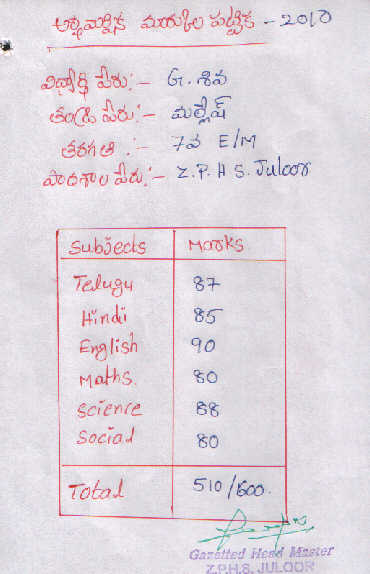 మార్కుల పట్టిక - 2010
విద్యార్థి పేరు:- G. శివ
తండ్రి పేరు:- మల్లేష్
తరగతి :- 7వ E/M
పాఠశాల పేరు:- Z.P.H S. Juloor
Subjects Marks
Telugu 87
Hindi 85
English 90
Maths. 80
Science 88
Social 80
Total 510/600.
Gazetted Head Master
Z.P.H.S. JULOOR